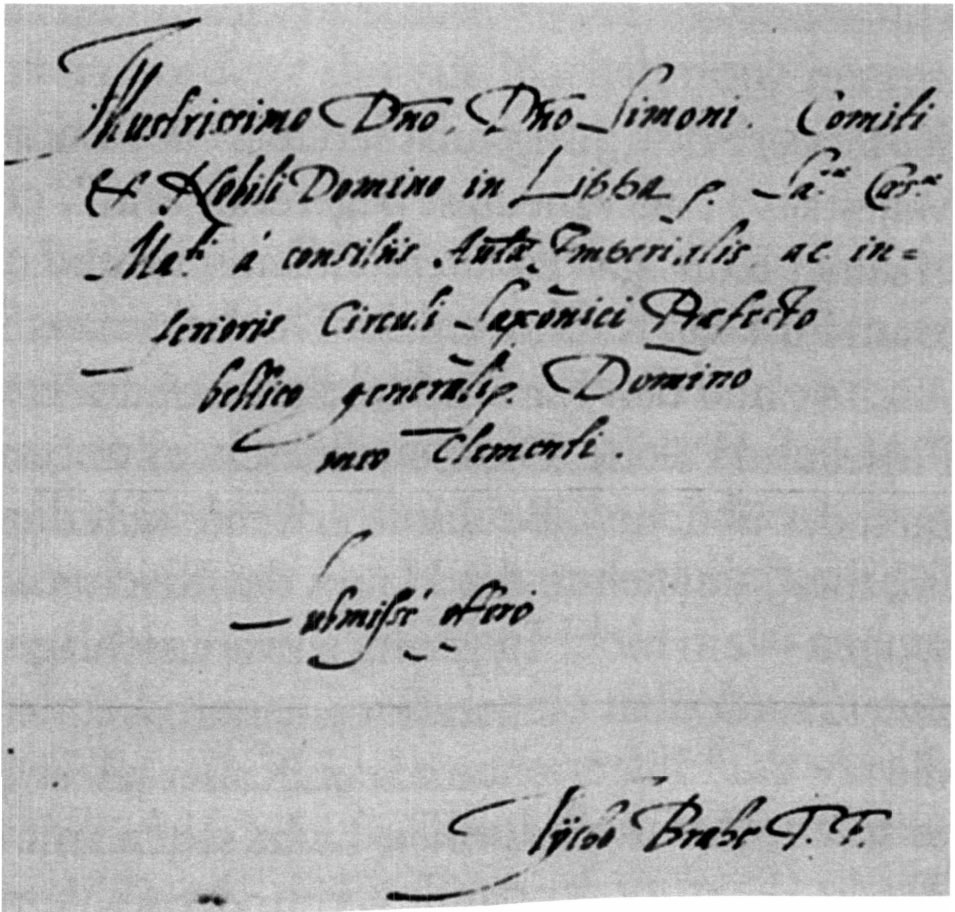 Illustrissimo Dño, Dño Simoni. Comiti
& Nobili Domino in Lippa p. Sa.ræ Cæs.ræ
Ma.ti á consiliis Aulæ Imperialis, ac in=
ferioris Circuli Saxonici Præfecto
bellico generali p. Domino
meo Clementi.
Submissé offero
Tÿcho Brahe T. F.